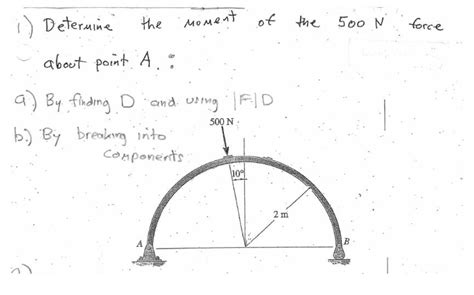 1) Determine the moment of the 500 N force
about point A. :
a.) By finding D and using |F|D
b.) By breaking into
components
500 N
10°
2 m
A
B